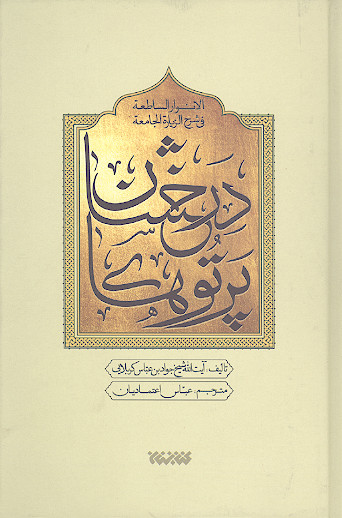 الانوار الساطعة
فی شرح الزیارة الجامعة
پرتوهای
درخشان
تألیف: آیت‌الله شیخ جواد بن عباس کربلایی
مترجم: عباس اعتمادیان